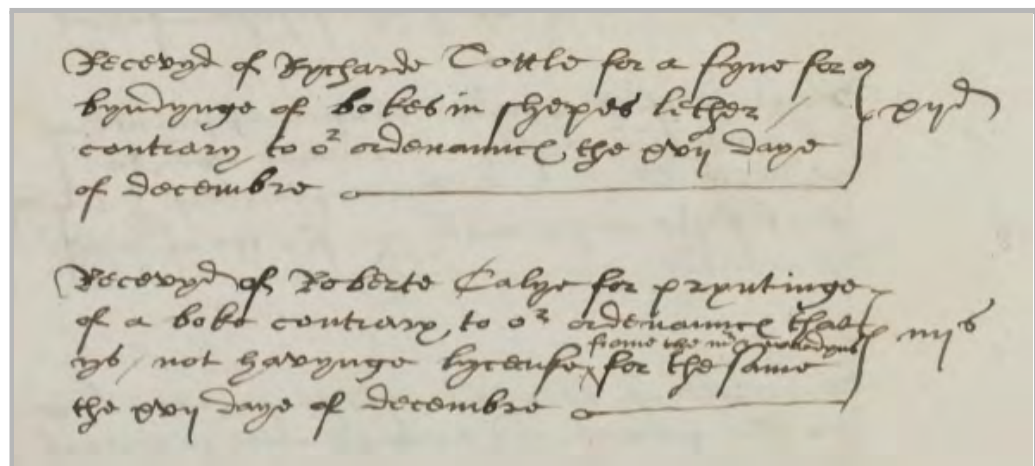 Recevyd of Rycharde Tottle for a fyne for
byndynge of bokes in shepes lether / xijd
contrary to or ordenaunce the xvij daye
of decembre
Recevyd of Roberte Calye for pryntinge
of a boke contrary to or ordenaunce that iiijs
ys / not havynge lycense frome the mr & wardyns for the same
the xvij daye of decembre